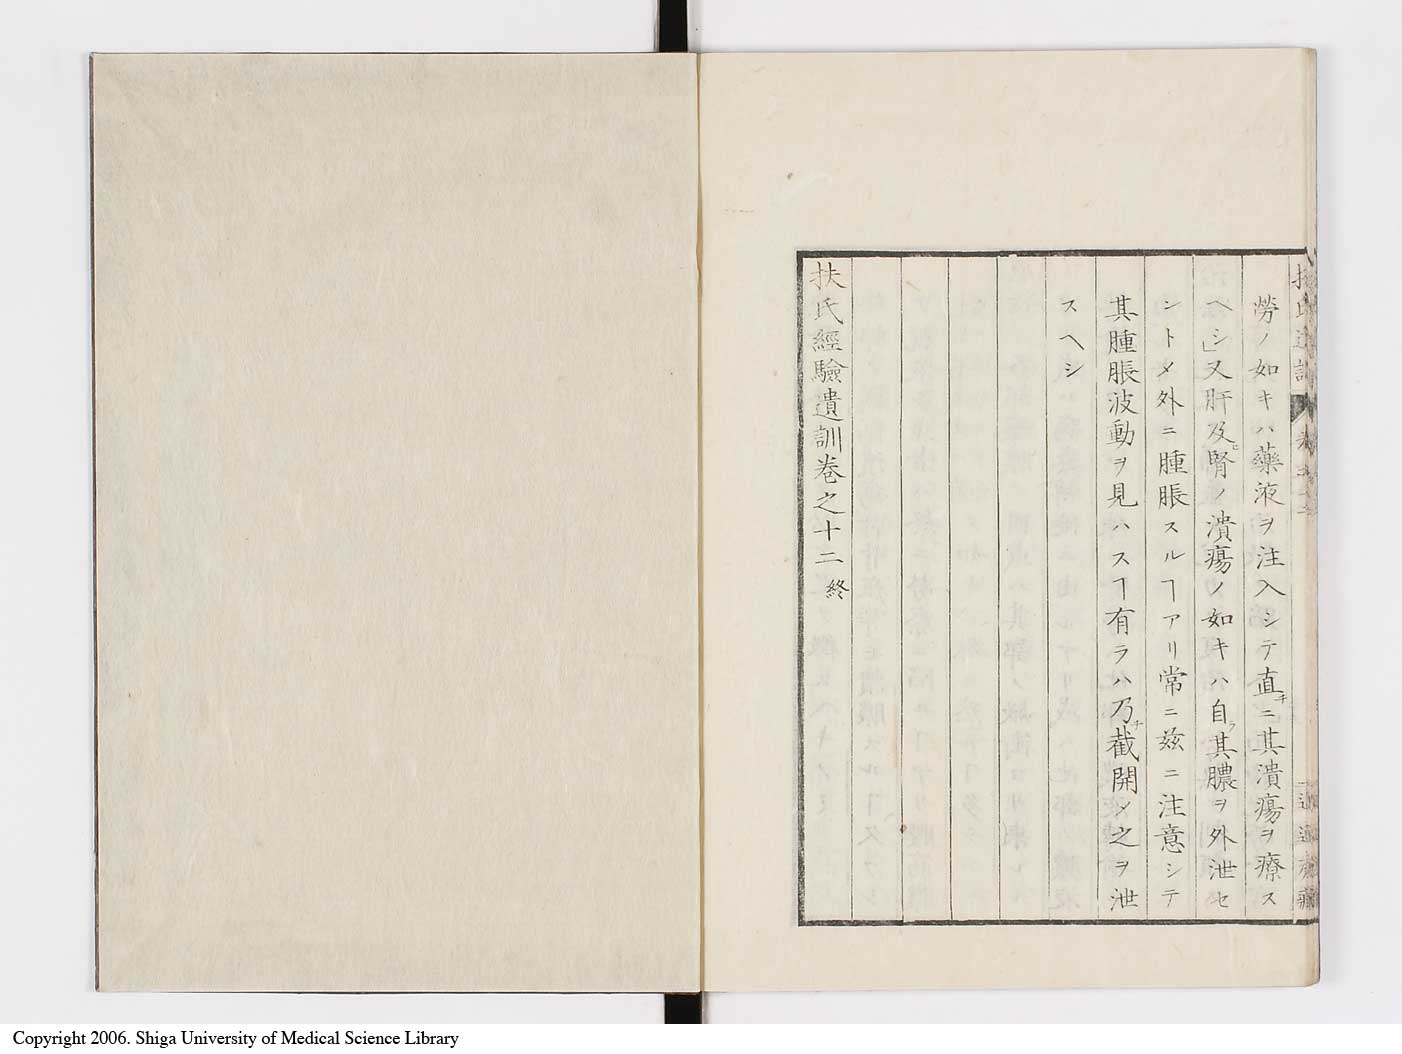 勞ノ如キハ藥液ヲ注入シテ直チニ其潰瘍ヲ療ス
ヘシ」又肝及ヒ腎ノ潰瘍ノ如キハ自ラ其膿ヲ外泄セ
シトメ外ニ腫脹スルヿアリ常ニ玆ニ注意シテ
其腫脹波動ヲ見ハスヿ有ラハ乃チ截開メ之ヲ泄
スヘシ
扶氏經驗遺訓卷之十二終
Copyright 2006. Shiga University of Medical Science Library